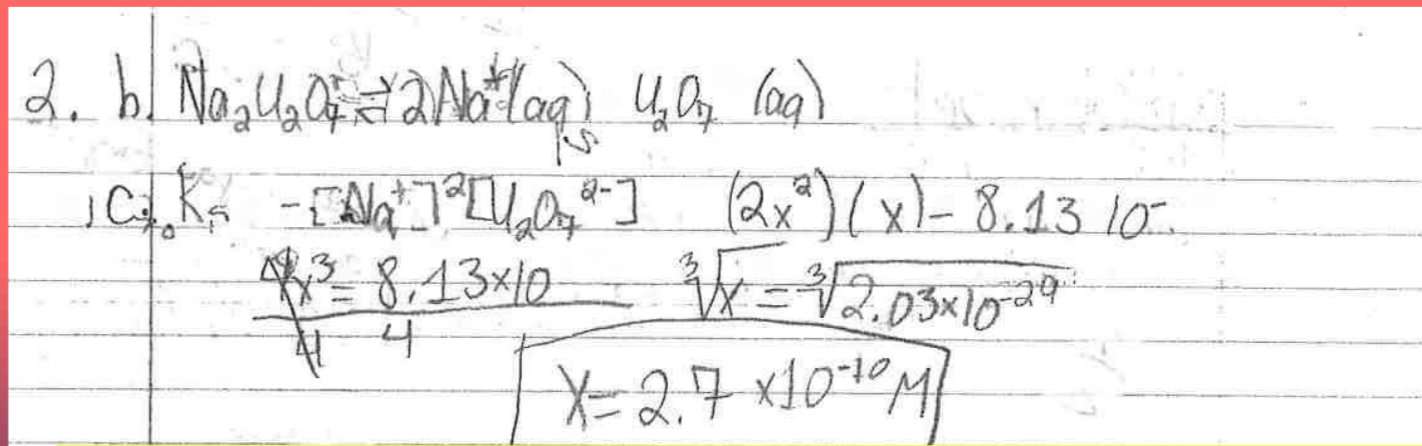 2. b. Na₂U₂O₇ ⇌ 2Na⁺(aq) U₂O₇ (aq)
c. K - [Na⁺]²[U₂O₇²⁻] (2x²)(x) - 8.13 10⁻
4x³ = 8.13×10 ∛x = ∛2.03×10⁻²⁹
4 4
X = 2.7 ×10⁻¹⁰ M